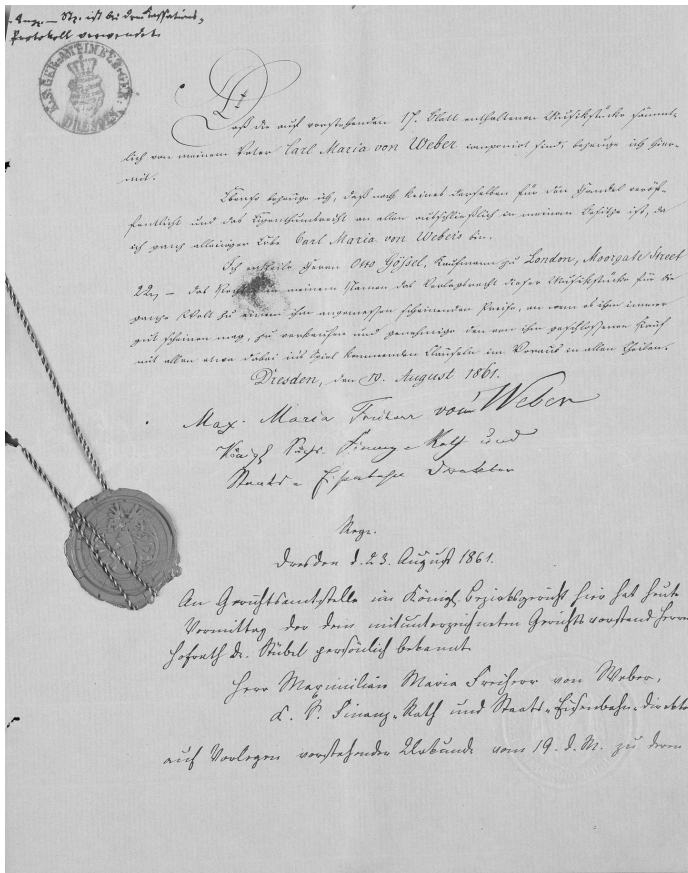 ist bei dem Cassations-
Protokoll verwendet.
DRESDEN
Daß die auf vorstehenden 17. Blatt enthaltenen Musikstücke sämmt-
lich von meinem Vater Carl Maria von Weber componirt sind, bezeuge ich hier-
mit.
Ebenso bezeuge ich, daß noch keines derselben für den Handel veröf-
fentlicht und das Eigenthumsrecht an allen ausschließlich in meinem Besitze ist, da
ich ganz alleiniger Erbe Carl Maria von Webers bin.
Ich ertheile Herrn Otto Gößel, Kaufmann zu London, Moorgate Street
22, — das in meinem Namen das Verlagsrecht dieser Musikstücke für die
ganze Welt zu einem ihm angemessen scheinenden Preise, an wen es ihm immer
gut scheinen mag, zu verkaufen und genehmige den von ihm geschlossenen Kauf
mit allen etwa dabei ins Spiel kommenden Clauseln im Voraus in allen Theilen.
Dresden, den 19. August 1861.
Max. Maria Freiherr von Weber
Königl Sächs. Finanz-Rath und
Staats-Eisenbahn Direktor
Regs.
Dresden d. 23. August 1861.
An Gerichtsamtsstelle im Königl. Bezirksgericht hier hat heute
Vormittag der dem mitunterzeichneten Gerichtsvorstand Herrn
Hofrath Dr. Stübel persönlich bekannte
Herr Maximilian Maria Freiherr von Weber,
K. S. Finanz-Rath und Staats-Eisenbahn-Direkto
auf Vorlegen vorstehender Urkunde vom 19. d. M. zu deren